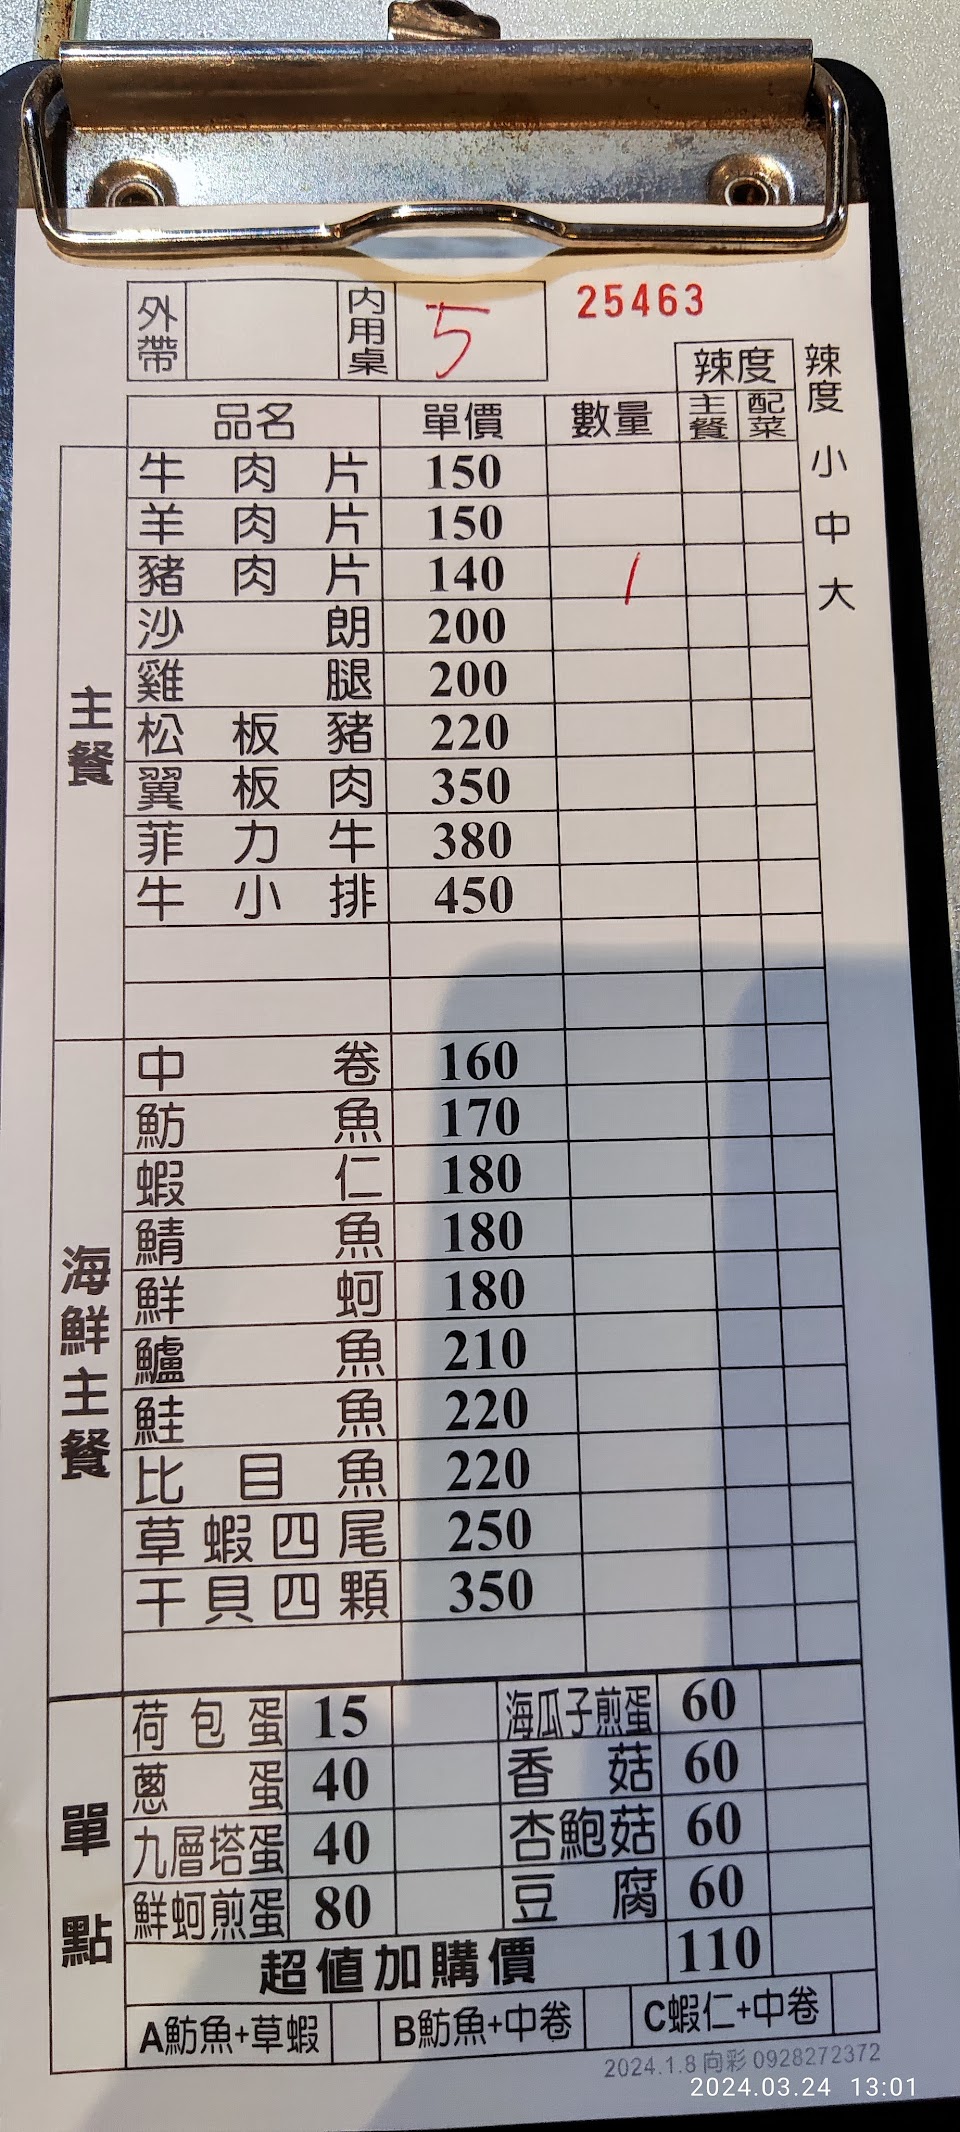 外帶 內用桌 5 25463
品名 單價 數量 辣度 主餐 配菜
辣度 小 中 大
主餐
牛肉片 150
羊肉片 150
豬肉片 140 1
沙朗 200
雞腿 200
松板豬 220
翼板肉 350
菲力牛 380
牛小排 450
海鮮主餐
中卷 160
魴魚 170
蝦仁 180
鯖魚 180
鮮蚵 180
鱸魚 210
鮭魚 220
比目魚 220
草蝦四尾 250
干貝四顆 350
單點
荷包蛋 15 海瓜子煎蛋 60
蔥蛋 40 香菇 60
九層塔蛋 40 杏鮑菇 60
鮮蚵煎蛋 80 豆腐 60
超值加購價 110
A魴魚+草蝦 B魴魚+中卷 C蝦仁+中卷
2024.1.8 向彩 0928272372
2024.03.24 13:01